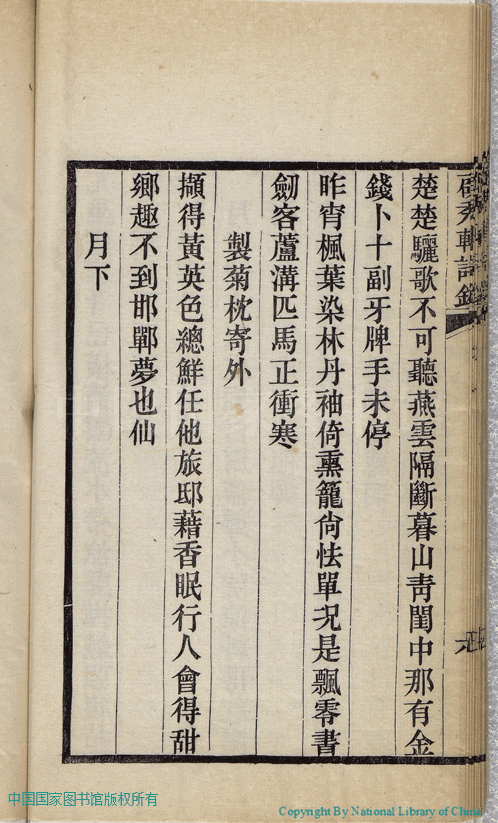 楚楚驪歌不可聽燕雲隔斷暮山靑閨中那有金
錢卜十副牙牌手未停
昨宵楓葉染林丹袖倚熏籠尙怯單況是飄零書
劒客蘆溝匹馬正衝寒
製菊枕寄外
擷得黃英色總鮮任他旅邸藉香眠行人會得甜
鄉趣不到邯鄲夢也仙
月下
中国国家图书馆版权所有
Copyright By National Library of China